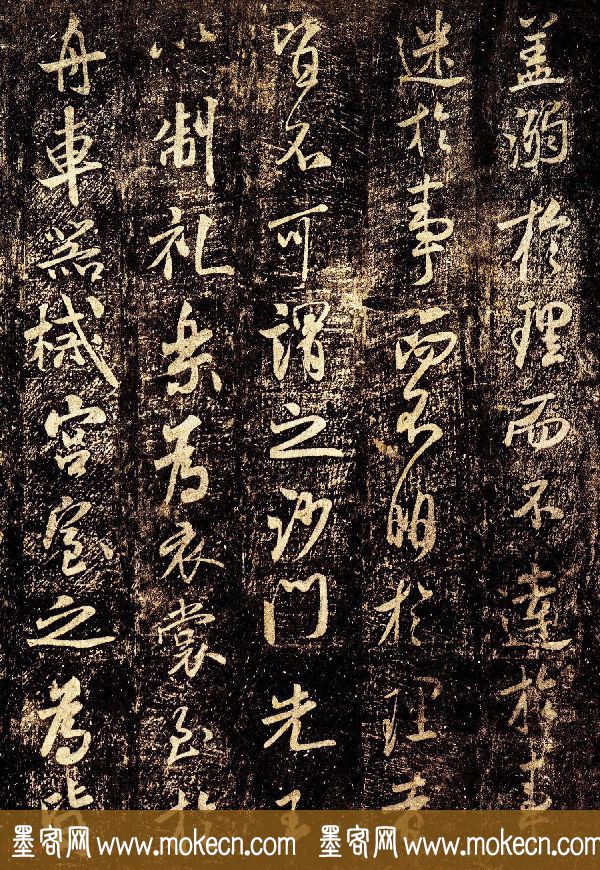 盖溺於理而不達於事
迷於事而不明於理者
皆不可謂之沙門先王
以制礼樂為衣裳至於
舟車器械宮室之為皆
墨客网 www.mokecn.com 墨客网 www.mokecn.com